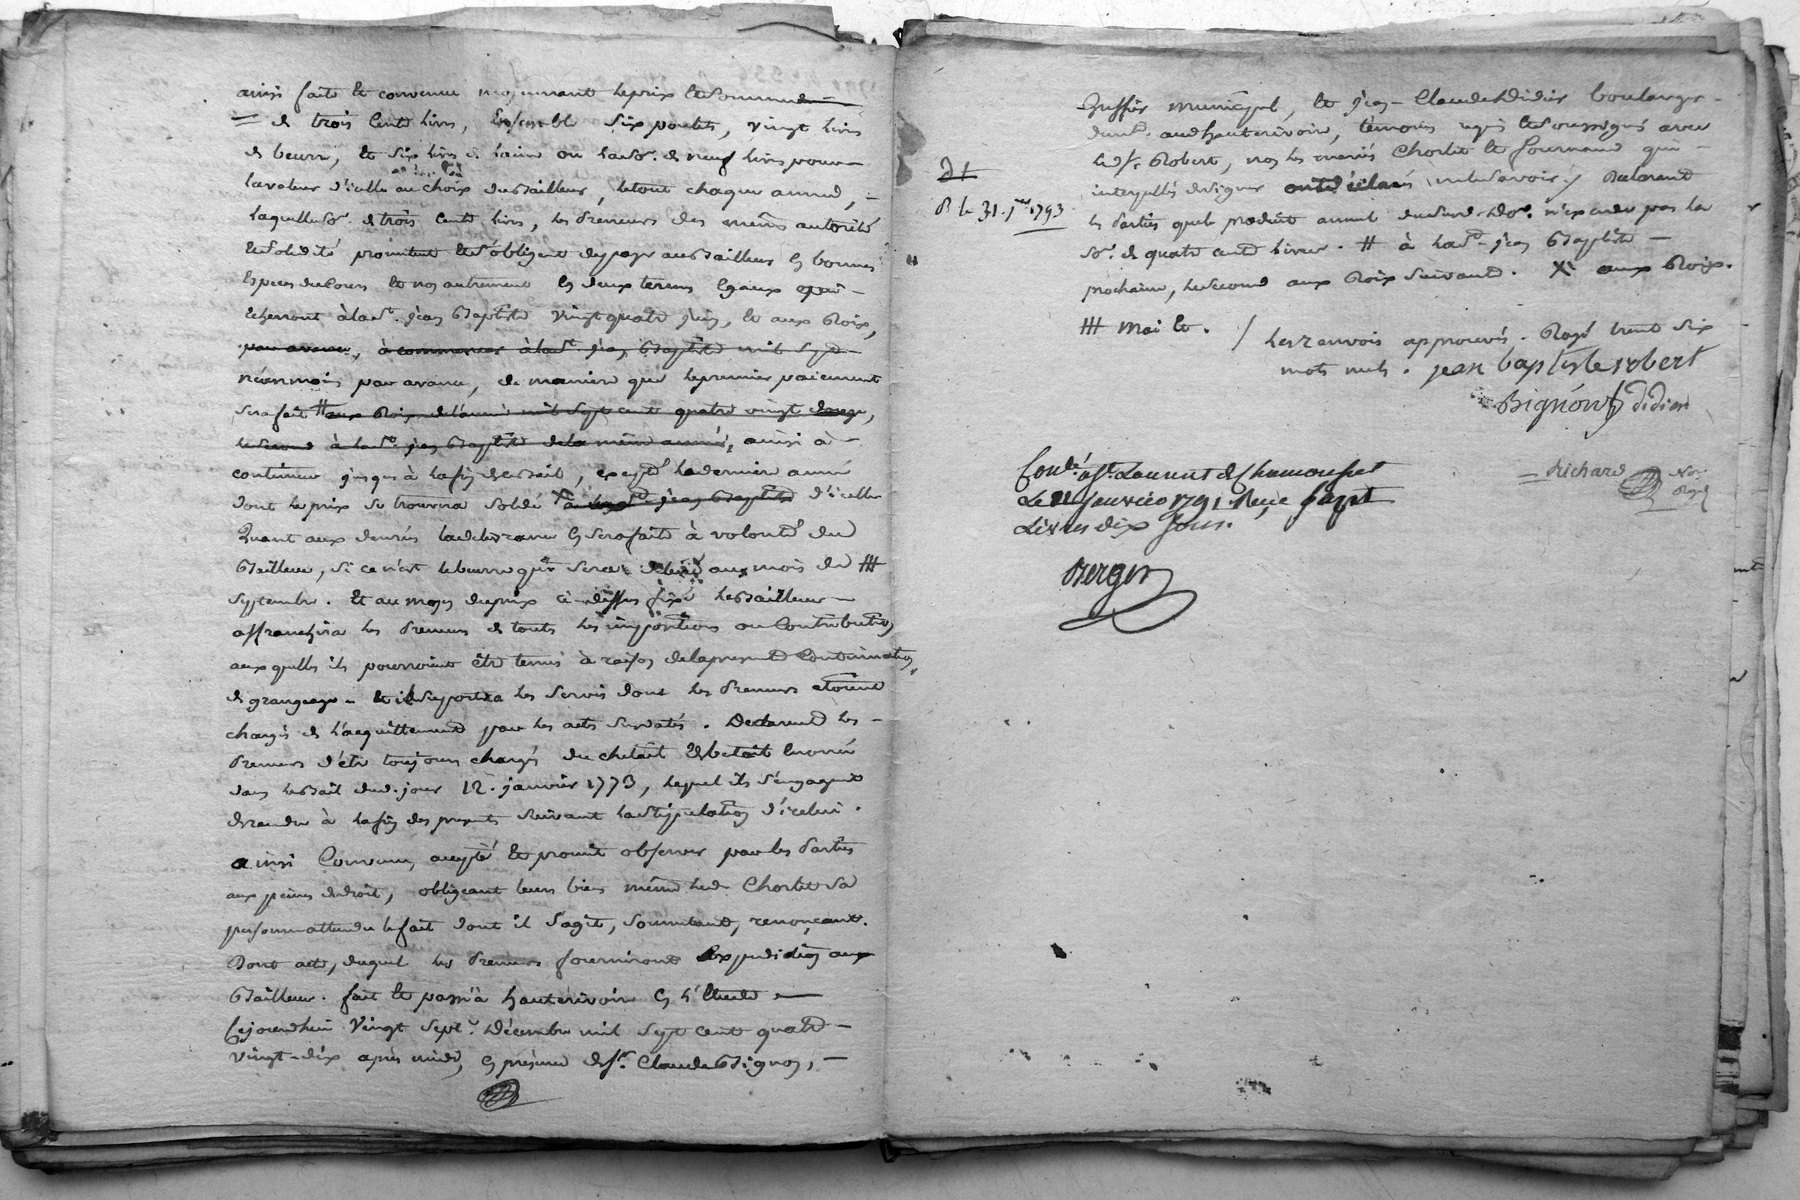 ainsi faite et convenue moyennant le prix et somme de
= de trois cents livres, Ensemble six poulets, vingt livres
de beurre, et six livres de laine ou la so.e de neuf livres pour
la valeur d'icelle au choix du Bailleur, le tout chaque année,
laquelle so.e de trois cents livres, les Preneurs des mêmes autorité
et solidité promettent et s'obligent de payer au Bailleur en bonnes
Espèces du cours et non autrement en deux termes égaux qui
écherront à la St. jean Baptiste vingt quatre juin, et aux Rois,
par avance, à commencer à la St. jean Baptiste mil sept
néanmoins par avance, de manière que le premier paiement
sera fait # aux Rois de l'année mil sept cent quatre vingt onze,
le second à la St. jean Baptiste de la même année, ainsi à
continuer jusques à la fin du Bail, excepté la dernière année
dont le prix se trouvera soldé X à la St. jean Baptiste d'icelle
Quant aux denrées la délivrance en sera faite à volonté du
Bailleur, si ce n'est le beurre qui sera délivré aux mois de ###
septembre. Et au moyen du prix ci-dessus fixé le Bailleur
affranchira les Preneurs de toutes les impositions ou Contributions
auxquelles ils pourroient être tenus à raison de la présente Continuation
de grangeage - et il supportera les servis dont les Preneurs étoient
chargés de l'acquittement par les actes susdatés. Déclarent les
Preneurs d'être toujours chargés du cheptel de bétail énoncé
dans le Bail dud. jour 12. janvier 1773, lequel ils s'engagent
de rendre à la fin des présentes suivant la stipulation d'icelui.
ainsi Convenu, accepté et promit observer par les Parties
aux peines de droit, obligeant leurs biens même led. Chorlet sa
personne attendu le fait dont il s'agit, soumettant, renonçant.
Dont acte, duquel les Preneurs fourniront Expédition aux
Bailleur. fait et passé à hauterivoire en l'Etude
Cejourd'hui vingt sept. Décembre mil sept cent quatre
vingt-dix après midi, en présence de sr. Claude Bignon,
huissier municipal, et jean-Claude Didier boulanger
dem.t aud. hauterivoire, témoins requis et soussignés avec
led. sr. Robert, non les mariés Chorlet et fournand qui
interpellés de signer ont déclarés ne le savoir. / Déclarent
les Parties que le produit annuel du surd. Do.e n'excede pas la
so.e de quatre cents livres. # à la St. jean Baptiste
prochaine, le second aux Rois suivant. X aux Rois.
### Mai et. / les renvois approuvés. Rayé trente six
mots nuls. jean baptiste robert
Bignon didier
Richard No.re Royal
Dt
P. le 31. j.er 1793
Conlé. a St. Laurent de Chamousset
Le 11 Janvier 1791. Reçu sept
Livres dix sous.
Berger